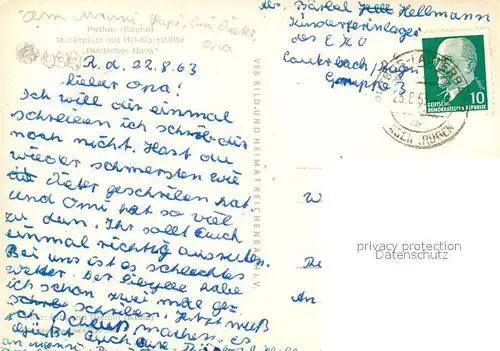 an Mimi, Papi, Omi Dieter,
Opa
Putbus (Rügen)
Marktplatz mit HO-Gaststätte
„Deutsches Haus"
R. d. 22.8.63
lieber Opa!
Ich will dir einmal
schreiben ich schrieb dir
noch nicht. Hast du
wieder schmersten wie
Dieter geschriben hat
und Omi hat so viel
zu dun. Ihr sollt auch
einmal richtig ausruhen.
Bei uns ist es schlechtes
wetter. Der habe
ich schon zwei mal ge-
schrieben. Jetzt muß
ich Schluß machen. es
grüßt Euch eure
VEB BILD UND HEIMAT REICHENBACH I. V.
Abs. Bärbel Hellmann
Kinderferienlager
des EKO
Lauterbach Rügen
Gruppe 3
DEUTSCHE
DEMOKRATISCHE REPUBLIK
10
privacy protection
Datenschutz
W
An